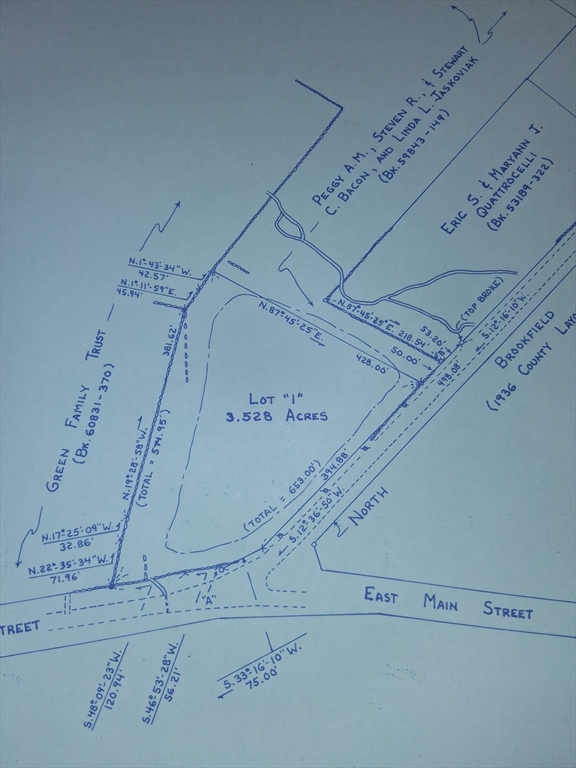 PEGGY A.M., STEVEN R., & STEWART
C. BACON, AND LINDA L. JASKOVIAK
(BK. 59843-149)
ERIC S. & MARYANN J.
QUATTROCELLI
(BK. 53189-322)
N.1°-43'-34"W.
42.57'
N.1°-11'-59"E.
45.94'
GREEN FAMILY TRUST
(BK. 60831-370)
381.62'
N.19°-28'-58"W.
(TOTAL = 574.95')
N.87°-45'-25"E.
428.00'
N.87°-45'-25"E. 218.54'
53.20'
50.00'
(TOP BROKE)
S.12°-16'-10"W.
498.08'
BROOKFIELD
(1936 COUNTY LAYO
LOT "1"
3.528 ACRES
(TOTAL = 653.00')
394.88'
S.12°-36'-50"W.
NORTH
N.17°-25'-09"W.
32.86'
N.22°-35'-34"W.
71.96'
"A"
TREET
EAST MAIN STREET
S.48°-09'-23"W.
120.94'
S.46°-53'-28"W.
56.21'
S.33°-16'-10"W.
75.00'